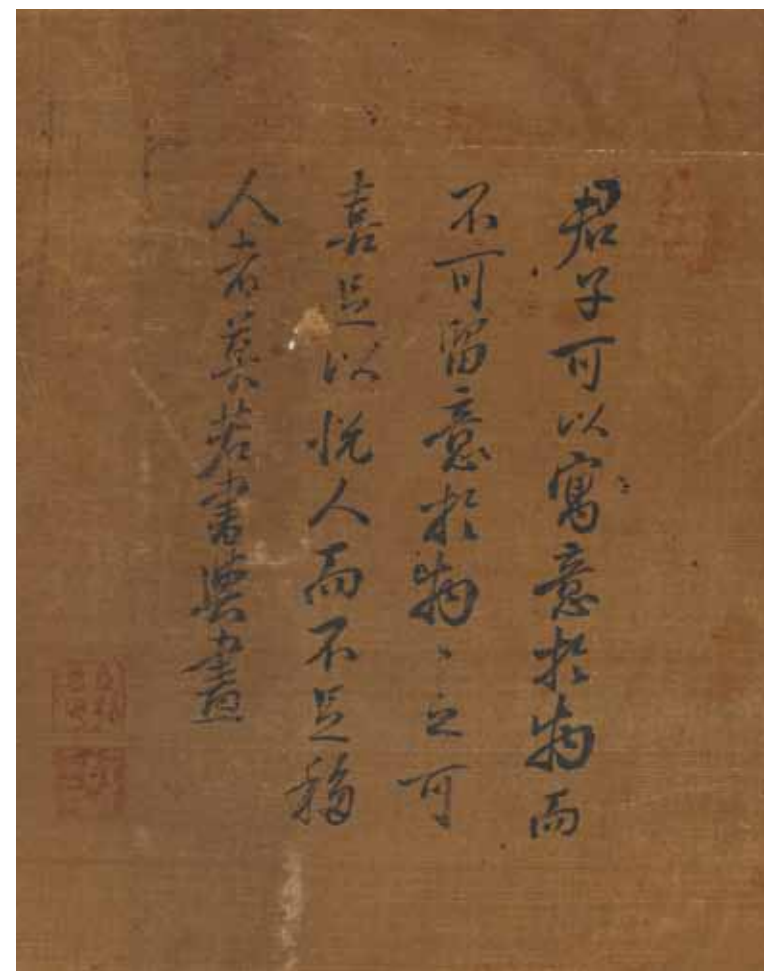 君子可以寓意於物而
不可留意於物〻之可
喜足以悅人而不足移
人者莫若書與畫